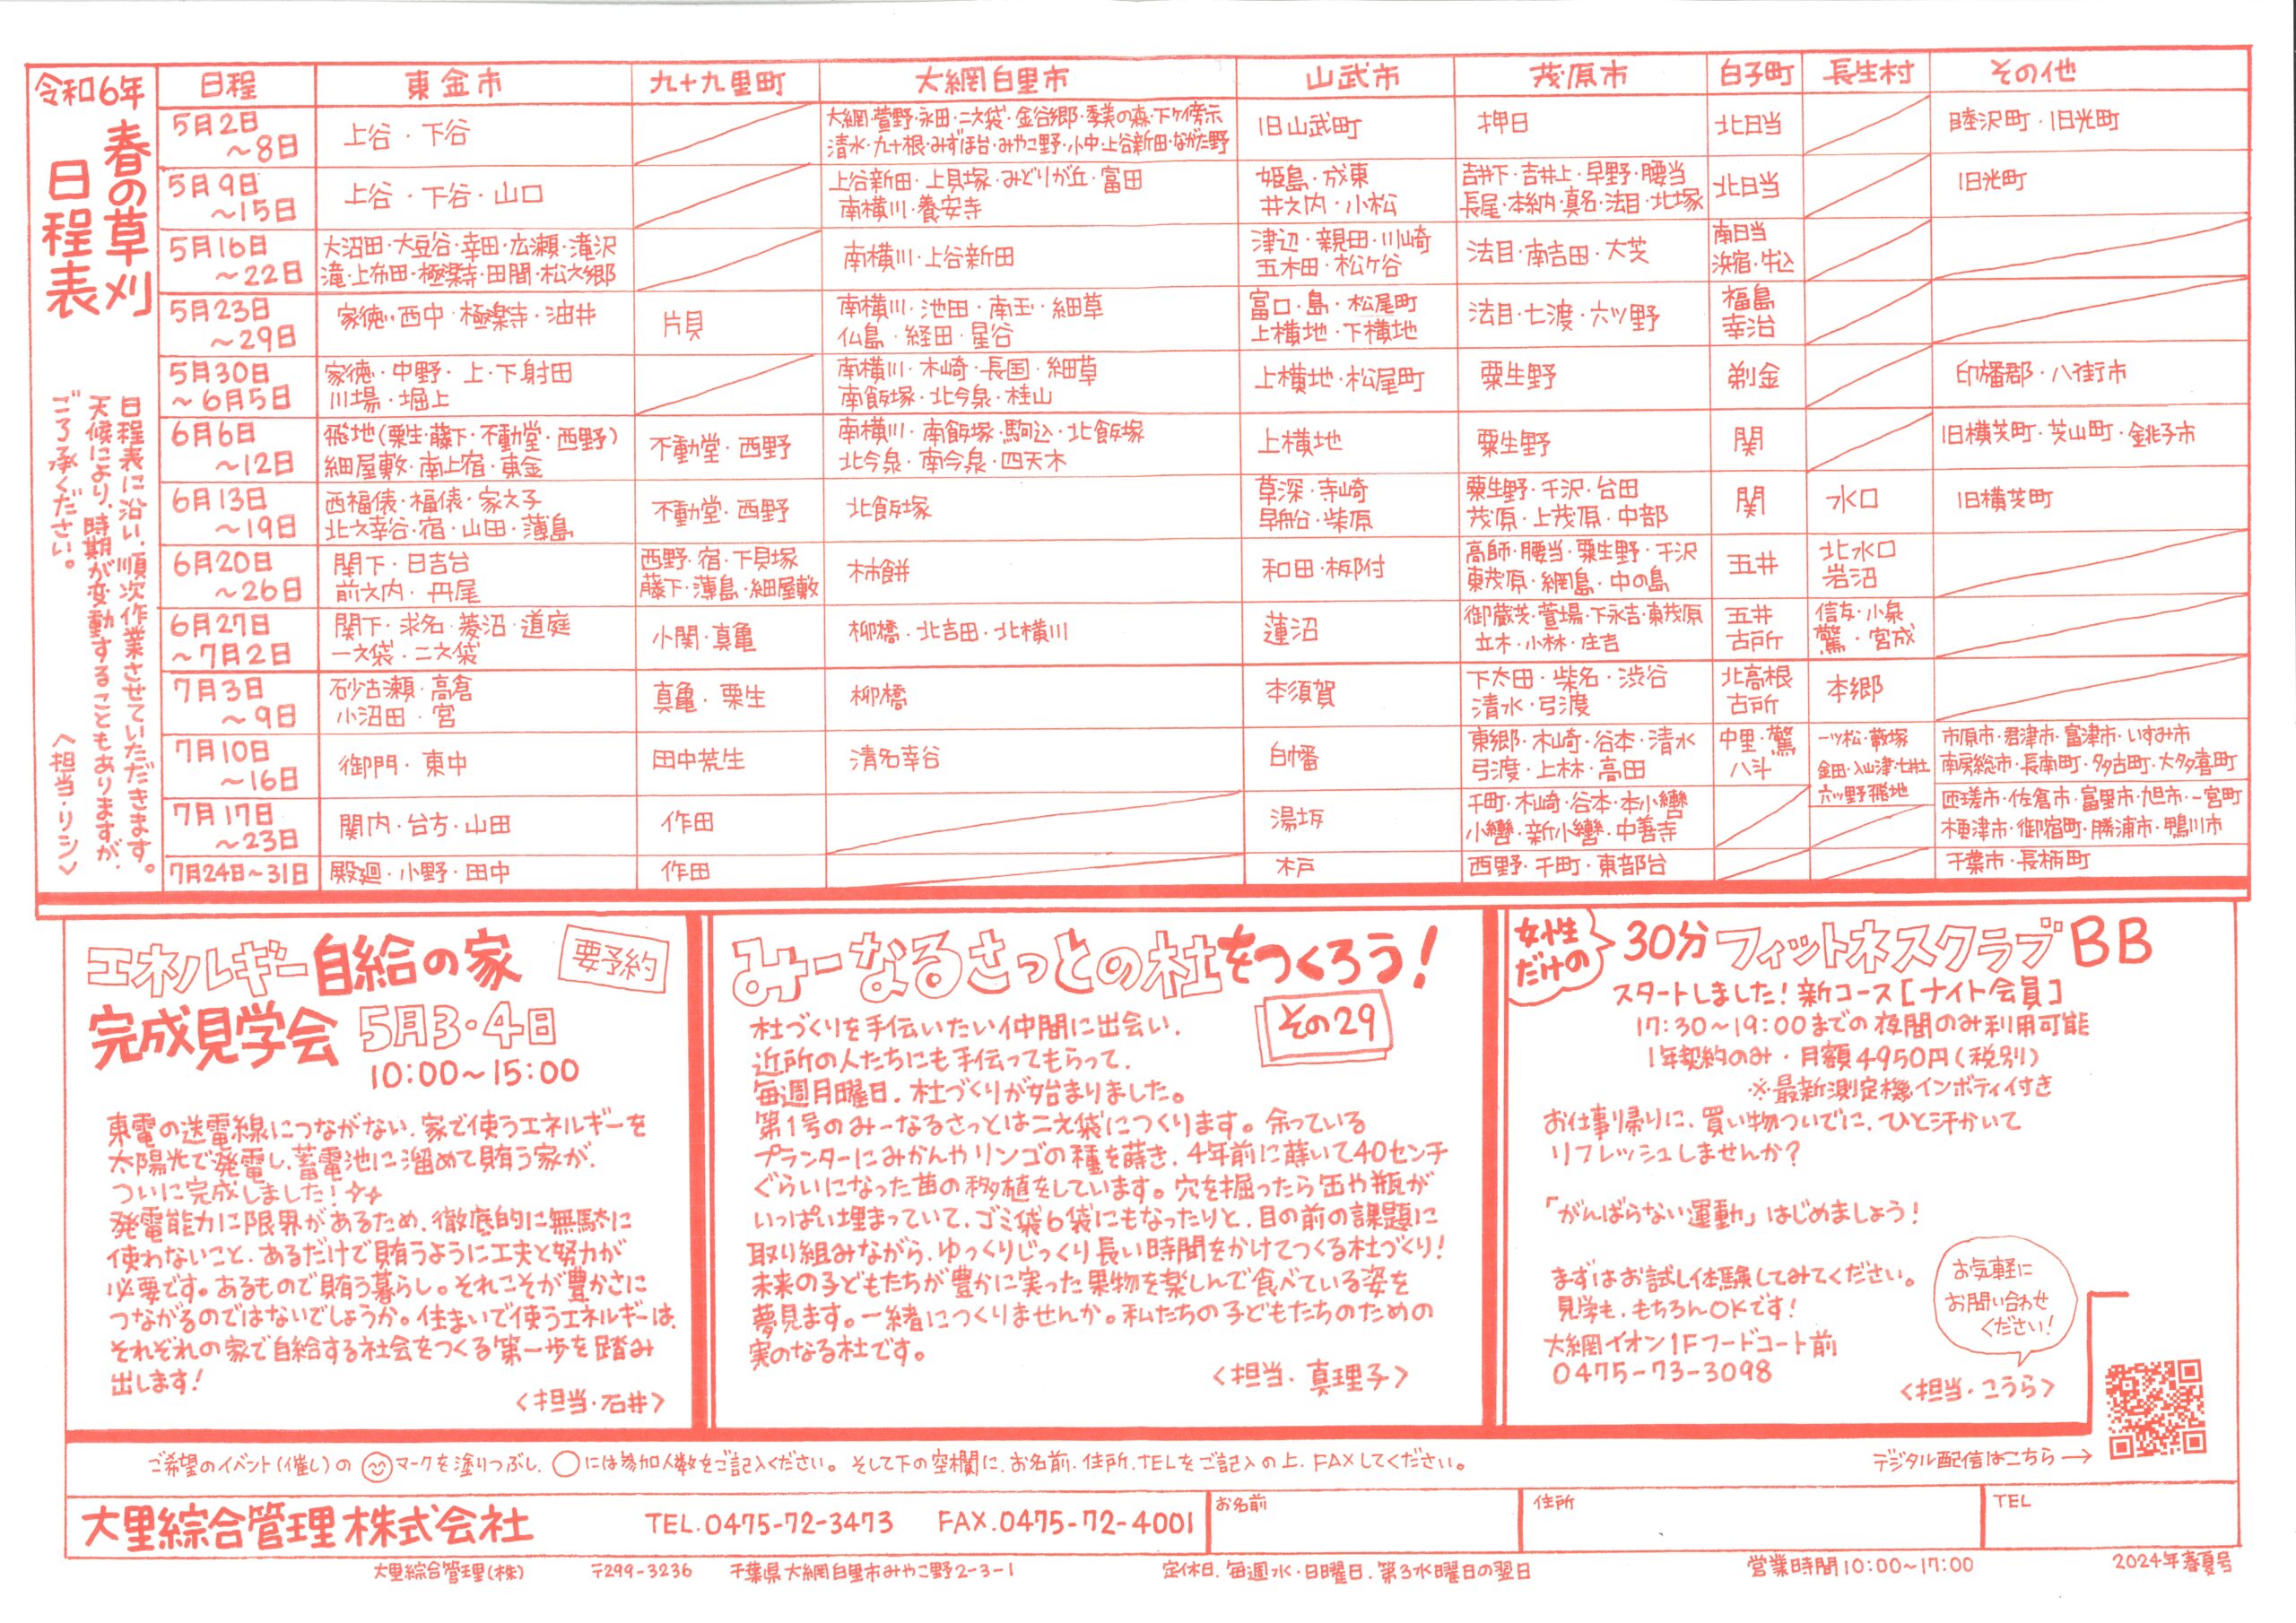 令和6年
春の草刈
日程表
日程表に沿い、順次作業させていただきます。
天候により、時期が変動することもありますが、
ご了承ください。
〈担当・リン〉
日程 東金市 九十九里町 大網白里市 山武市 茂原市 白子町 長生村 その他
5月2日～8日 上谷・下谷
大網・萱野・永田・二之袋・金谷郷・季美の森・下ケ傍示
清水・九十根・みずほ台・みやこ野・小中・上谷新田・ながた野
旧山武町 押日 北日当 睦沢町・旧光町
5月9日～15日 上谷・下谷・山口
上谷新田・上貝塚・みどりが丘・富田
南横川・養安寺
姫島・成東
井之内・小松
吉井下・吉井上・早野・腰当
長尾・本納・真名・法目・北塚
北日当 旧光町
5月16日～22日
大沼田・大豆谷・幸田・広瀬・滝沢
滝・上布田・極楽寺・田間・松之郷
南横川・上谷新田
津辺・親田・川崎
五木田・松ケ谷
法目・南吉田・大芝
南日当
浜宿・牛込
5月23日～29日 家徳・西中・極楽寺・油井 片貝
南横川・池田・南玉・細草
仏島・経田・星谷
富口・島・松尾町
上横地・下横地
法目・七渡・六ツ野
福島
幸治
5月30日～6月5日
家徳・中野・上・下射田
川場・堀上
南横川・木崎・長国・細草
南飯塚・北今泉・桂山
上横地・松尾町 粟生野 剃金 印旛郡・八街市
6月6日～12日
飛地(粟生・藤下・不動堂・西野)
細屋敷・南上宿・東金
不動堂・西野
南横川・南飯塚・駒込・北飯塚
北今泉・南今泉・四天木
上横地 粟生野 関 旧横芝町・芝山町・銚子市
6月13日～19日
西福俵・福俵・家之子
北之幸谷・宿・山田・薄島
不動堂・西野 北飯塚
草深・寺崎
早船・柴原
粟生野・千沢・台田
茂原・上茂原・中部
関 水口 旧横芝町
6月20日～26日
関下・日吉台
前之内・丹尾
西野・宿・下貝塚
藤下・薄島・細屋敷
柿餅 和田・板附
高師・腰当・粟生野・千沢
東茂原・網島・中の島
五井
北水口
岩沼
6月27日～7月2日
関下・求名・菱沼・道庭
一之袋・二之袋
小関・真亀 柳橋・北吉田・北横川 蓮沼
御蔵芝・萱場・下永吉・東茂原
立木・小林・庄吉
五井
古所
信友・小泉
驚・宮成
7月3日～9日
砂古瀬・高倉
小沼田・宮
真亀・粟生 柳橋 本須賀
下太田・柴名・渋谷
清水・弓渡
北高根
古所
本郷
7月10日～16日 御門・東中 田中荒生 清名幸谷 白幡
東郷・木崎・谷本・清水
弓渡・上林・高田
中里・驚
八斗
一ツ松・薮塚
金田・入山津・七井土
六ツ野飛地
市原市・君津市・富津市・いすみ市
南房総市・長南町・多古町・大多喜町
7月17日～23日 関内・台方・山田 作田 湯坂
千町・木崎・谷本・本小轡
小轡・新小轡・中善寺
匝瑳市・佐倉市・富里市・旭市・一宮町
木更津市・御宿町・勝浦市・鴨川市
7月24日～31日 殿廻・小野・田中 作田 木戸 西野・千町・東部台 千葉市・長柄町
エネルギー自給の家
要予約
完成見学会 5月3・4日
10:00～15:00
東電の送電線につながない、家で使うエネルギーを
太陽光で発電し、蓄電池に溜めて賄う家が、
ついに完成しました！
発電能力に限界があるため、徹底的に無駄に
使わないこと、あるだけで賄うように工夫と努力が
必要です。あるもので賄う暮らし。それこそが豊かさに
つながるのではないでしょうか。住まいで使うエネルギーは、
それぞれの家で自給する社会をつくる第一歩を踏み
出します！
〈担当・石井〉
みーなるさっとの杜をつくろう！
その29
杜づくりを手伝いたい仲間に出会い、
近所の人たちにも手伝ってもらって、
毎週月曜日、杜づくりが始まりました。
第1号のみーなるさっとは二之袋につくります。余っている
プランターにみかんやリンゴの種を蒔き、4年前に蒔いて40センチ
ぐらいになった苗の移植をしています。穴を掘ったら缶や瓶が
いっぱい埋まっていて、ゴミ袋6袋にもなったりと、目の前の課題に
取り組みながら、ゆっくりじっくり長い時間をかけてつくる杜づくり！
未来の子どもたちが豊かに実った果物を楽しんで食べている姿を
夢見ます。一緒につくりませんか。私たちの子どもたちのための
実のなる杜です。
〈担当、真理子〉
女性だけの
30分フィットネスクラブBB
スタートしました！新コース[ナイト会員]
17:30～19:00までの夜間のみ利用可能
1年契約のみ・月額4950円(税別)
※最新測定機インボディ付き
お仕事帰りに、買い物ついでに、ひと汗かいて
リフレッシュしませんか？
「がんばらない運動」はじめましょう！
まずはお試し体験してみてください。
見学も、もちろんOKです！
大網イオン1Fフードコート前
0475-73-3098
お気軽に
お問い合わせ
ください！
〈担当・こうら〉
ご希望のイベント(催し)の マークを塗りつぶし、○には参加人数をご記入ください。そして下の空欄に、お名前、住所、TELをご記入の上、FAXしてください。
デジタル配信はこちら→
大里綜合管理株式会社 TEL.0475-72-3473 FAX.0475-72-4001
お名前 住所 TEL
大里綜合管理(株) 〒299-3236 千葉県大網白里市みやこ野2-3-1 定休日、毎週水・日曜日、第3水曜日の翌日 営業時間10:00～17:00 2024年春夏号